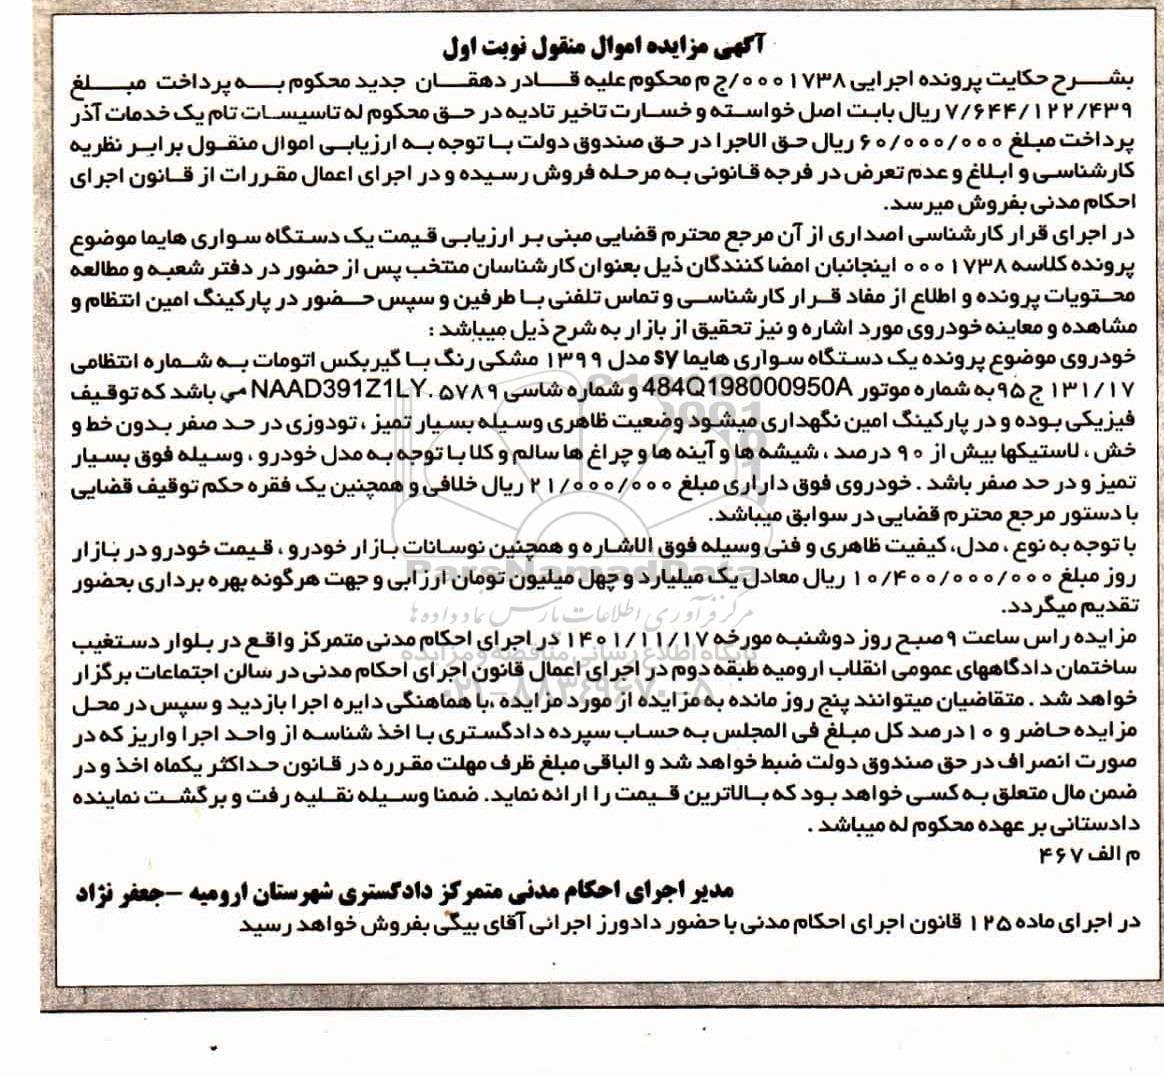 آگهی مزایده اموال منقول نوبت اول
بشرح حکایت پرونده اجرایی ۰۰۰۱۷۳۸/ج م محکوم علیه قادر دهقان جدید محکوم به پرداخت مبلغ
۷/۶۴۴/۱۲۲/۴۳۹ ریال بابت اصل خواسته و خسارت تاخیر تادیه در حق محکوم له تاسیسات تام یک خدمات آذر
پرداخت مبلغ ۶۰/۰۰۰/۰۰۰ ریال حق الاجرا در حق صندوق دولت با توجه به ارزیابی اموال منقول برابر نظریه
کارشناسی و ابلاغ و عدم تعرض در فرجه قانونی به مرحله فروش رسیده و در اجرای اعمال مقررات از قانون اجرای
احکام مدنی بفروش میرسد.
در اجرای قرار کارشناسی اصداری از آن مرجع محترم قضایی مبنی بر ارزیابی قیمت یک دستگاه سواری هایما موضوع
پرونده کلاسه ۰۰۰۱۷۳۸ اینجانبان امضا کنندگان ذیل بعنوان کارشناسان منتخب پس از حضور در دفتر شعبه و مطالعه
محتویات پرونده و اطلاع از مفاد قرار کارشناسی و تماس تلفنی با طرفین و سپس حضور در پارکینگ امین انتظام و
مشاهده و معاینه خودروی مورد اشاره و نیز تحقیق از بازار به شرح ذیل میباشد :
خودروی موضوع پرونده یک دستگاه سواری هایما sy مدل ۱۳۹۹ مشکی رنگ با گیربکس اتومات به شماره انتظامی
۱۳۱/۱۷ ج ۹۵ به شماره موتور 484Q198000950A و شماره شاسی NAAD391Z1LY.۵۷۸۹ می باشد که توقیف
فیزیکی بوده و در پارکینگ امین نگهداری میشود وضعیت ظاهری وسیله بسیار تمیز ، تودوزی در حد صفر بدون خط و
خش ، لاستیکها بیش از ۹۰ درصد ، شیشه ها و آینه ها و چراغ ها سالم و کلا با توجه به مدل خودرو ، وسیله فوق بسیار
تمیز و در حد صفر باشد . خودروی فوق داراری مبلغ ۲۱/۰۰۰/۰۰۰ ریال خلافی و همچنین یک فقره حکم توقیف قضایی
با دستور مرجع محترم قضایی در سوابق میباشد.
با توجه به نوع ، مدل، کیفیت ظاهری و فنی وسیله فوق الاشاره و همچنین نوسانات بازار خودرو ، قیمت خودرو در بازار
روز مبلغ ۱۰/۴۰۰/۰۰۰/۰۰۰ ریال معادل یک میلیارد و چهل میلیون تومان ارزابی و جهت هرگونه بهره برداری بحضور
تقدیم میگردد.
مزایده راس ساعت ۹ صبح روز دوشنبه مورخه ۱۴۰۱/۱۱/۱۷ در اجرای احکام مدنی متمرکز واقع در بلوار دستغیب
ساختمان دادگاههای عمومی انقلاب ارومیه طبقه دوم در اجرای اعمال قانون اجرای احکام مدنی در سالن اجتماعات برگزار
خواهد شد . متقاضیان میتوانند پنج روز مانده به مزایده از مورد مزایده ،با هماهنگی دایره اجرا بازدید و سپس در محل
مزایده حاضر و ۱۰درصد کل مبلغ فی المجلس به حساب سپرده دادگستری با اخذ شناسه از واحد اجرا واریز که در
صورت انصراف در حق صندوق دولت ضبط خواهد شد و الباقی مبلغ ظرف مهلت مقرره در قانون حداکثر یکماه اخذ و در
ضمن مال متعلق به کسی خواهد بود که بالاترین قیمت را ارائه نماید. ضمنا وسیله نقلیه رفت و برگشت نماینده
دادستانی بر عهده محکوم له میباشد .
م الف ۴۶۷
مدیر اجرای احکام مدنی متمرکز دادگستری شهرستان ارومیه -جعفر نژاد
در اجرای ماده ۱۲۵ قانون اجرای احکام مدنی با حضور دادورز اجرائی آقای بیگی بفروش خواهد رسید
ParsNamadData
مرکز فرآوری اطلاعات پارس نماد داده ها
پایگاه اطلاع رسانی مناقصه و مزایده
۰۲۱-۸۸۳۴۹۶۷۰-۵